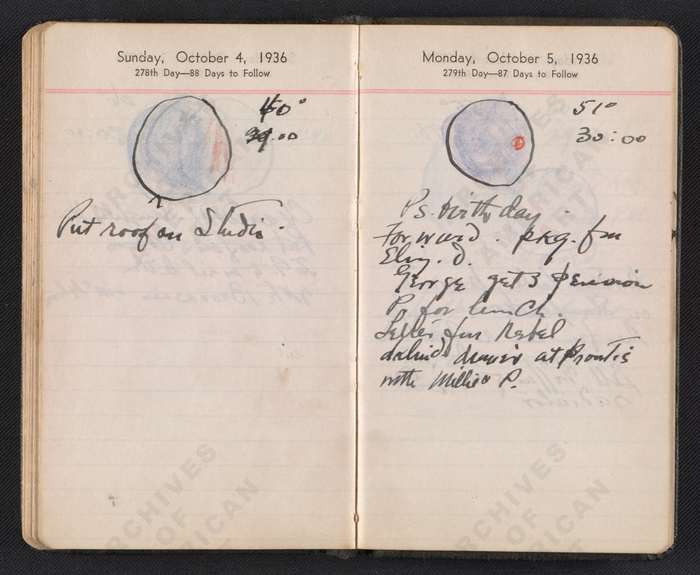 Sunday, October 4, 1936
278th Day—88 Days to Follow
40°
39.00
Put roof on Studio.
Monday, October 5, 1936
279th Day—87 Days to Follow
51°
30:00
Ps. birth day.
For ward. pkg. fm
Eliz. D.
George gets pension
P for lunch.
Letter fm Rebel
dinner at Prontis
with Millie & P.
ARCHIVES
OF
AMERICAN
ART